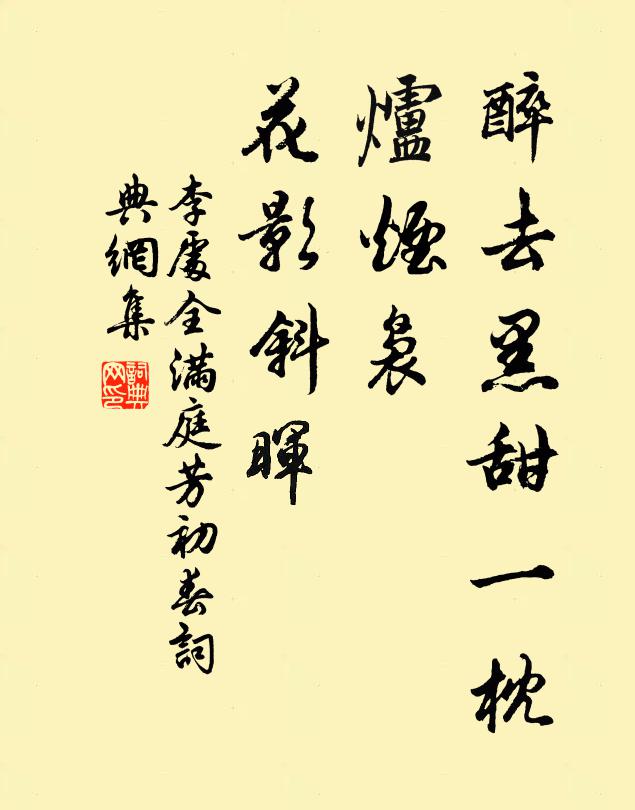 醉去黑甜一枕
爐煙裊
花影斜暉
李處全滿庭芳初春詞
典網集
詞典网印